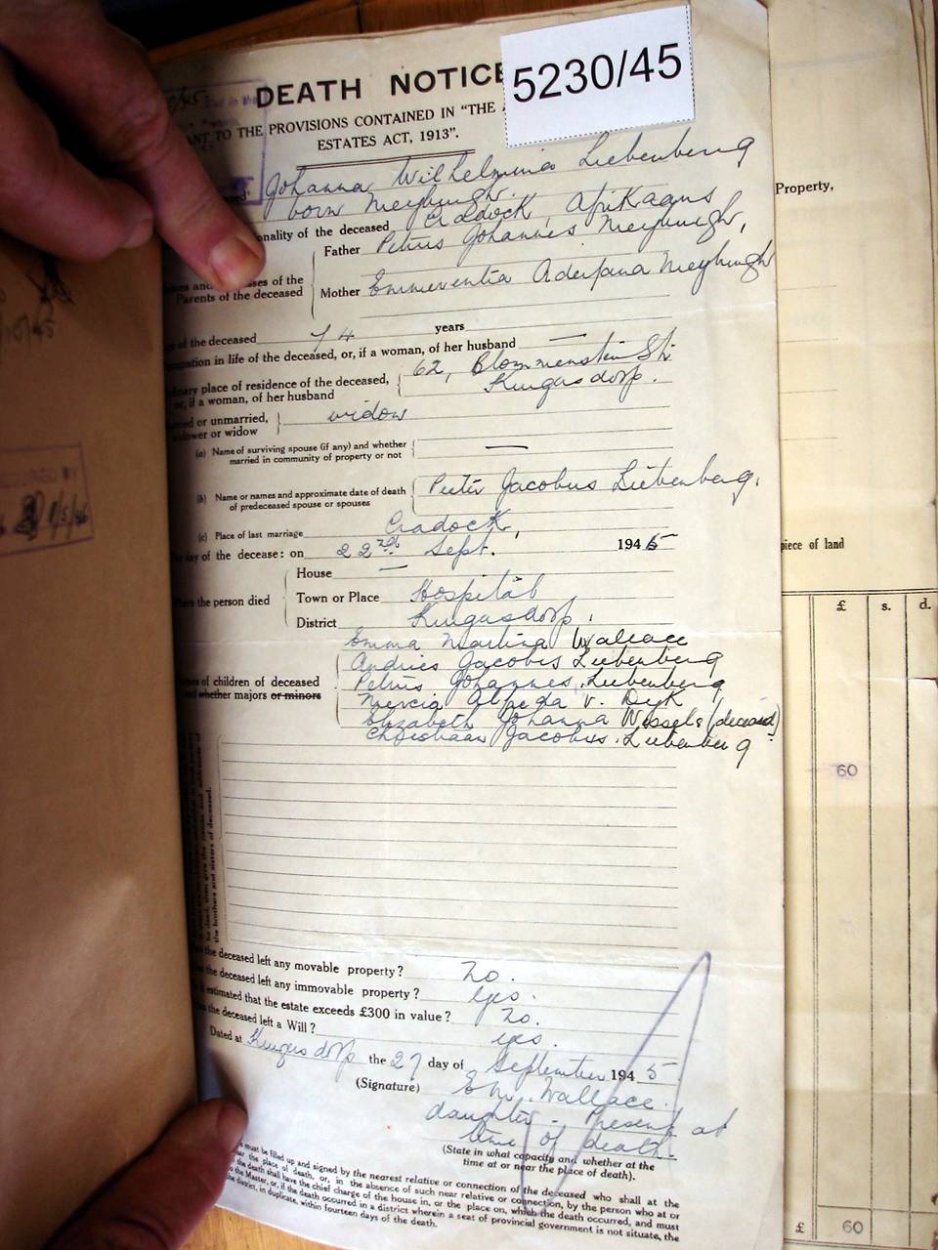 DEATH NOTICE
5230/45
ANT TO THE PROVISIONS CONTAINED IN "THE
ESTATES ACT, 1913".
Johanna Wilhelmina Liebenberg
born Meyburgh.
onality of the deceased Cradock, Afrikaans
Father Petrus Johannes Meyburgh,
Parents of the deceased
Mother Emmerentia Meyburgh
of the deceased 74 years
in life of the deceased, or, if a woman, of her husband —
place of residence of the deceased, 62, St.
or, if a woman, of her husband Krugersdorp.
or unmarried, widow
or widow
(a) Name of surviving spouse (if any) and whether —
married in community of property or not
(b) Name or names and approximate date of death Pieter Jacobus Liebenberg.
of predeceased spouse or spouses
(c) Place of last marriage Cradock,
day of the decease: on 22nd Sept. 1945
House —
the person died Town or Place Hospital
District Krugersdorp.
Emma Martina Wallace
Andries Jacobus Liebenberg
of children of deceased Petrus Johannes Liebenberg
whether majors or minors Mercia v. Dyk
Elizabeth Johanna Wessels (deceased)
Jacobus Liebenberg
the brothers and sisters of deceased.
the deceased left any movable property? No.
the deceased left any immovable property? yes.
estimated that the estate exceeds £300 in value? No.
the deceased left a Will? yes.
Dated at Krugersdorp the 27 day of September 1945
(Signature) E M. Wallace.
daughter - Present at
time of death.
(State in what capacity and whether at the
time at or near the place of death).
must be filled up and signed by the nearest relative or connection of the deceased who shall at the
the place of death, or, in the absence of such near relative or connection, by the person who at or
the death shall have the chief charge of the house in, or the place on, which the death occurred, and must
the Master, or, if the death occurred in a district wherein a seat of provincial government is not situate, the
district, in duplicate, within fourteen days of the death.
Property,
piece of land
£ s. d.
60
£ 60